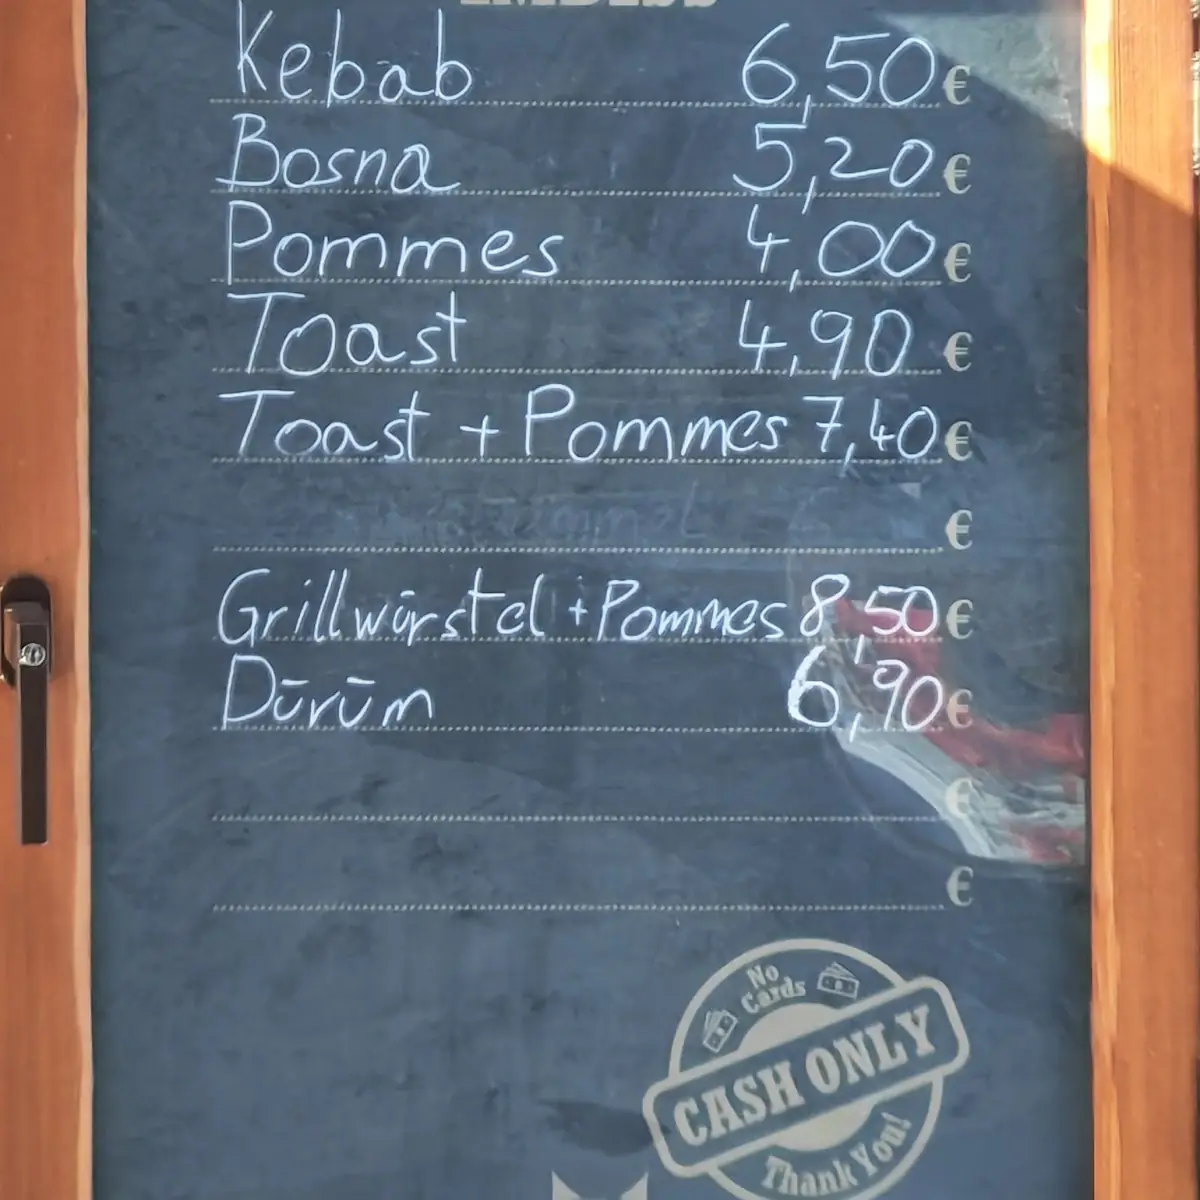 IMBISS
Kebab 6,50 €
Bosna 5,20 €
Pommes 4,00 €
Toast 4,90 €
Toast + Pommes 7,40 €
€
Grillwürstel + Pommes 8,50 €
Dürüm 6,90 €
€
€
No
Cards
CASH ONLY
Thank You!